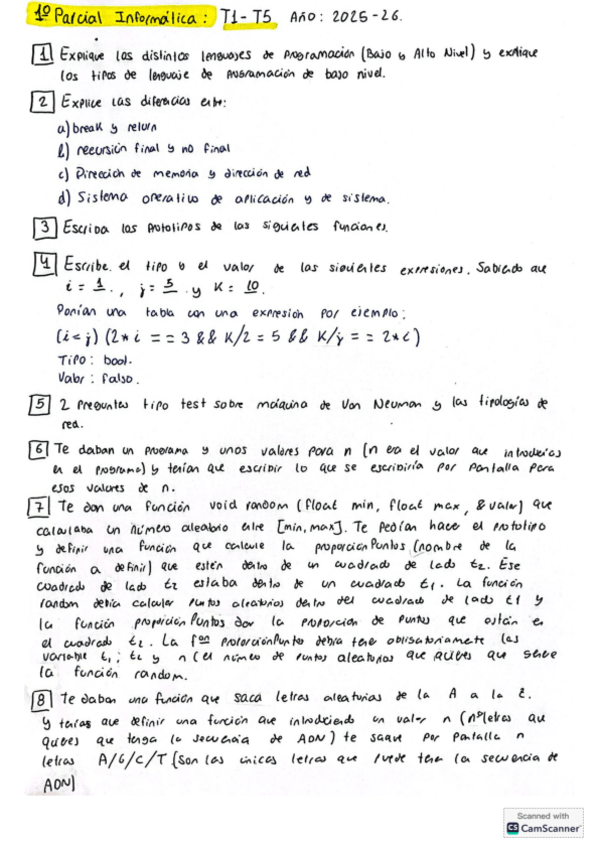 1º Parcial Informática: T1-T5 Año: 2025-26.
1 Explique los distintos lenguajes de programación (Bajo y Alto Nivel) y explique
los tipos de lenguaje de programación de bajo nivel.
2 Explice las diferencias entre:
a) break y return
b) recursión final y no final
c) Dirección de memoria y dirección de red
d) Sistema operativo de aplicación y de sistema.
3 Escriba los prototipos de las siguientes funciones.
4 Escribe el tipo y el valor de las siguientes expresiones. Sabiendo que
i = 1, j = 5 y K = 10.
Ponían una tabla con una expresión por ejemplo:
(i<j) (2*i == 3 && K/2 = 5 && K/j == 2*i)
Tipo: bool.
Valor: falso.
5 2 Preguntas tipo test sobre máquina de Von Neuman y las tipologías de
red.
6 Te daban un programa y unos valores para n (n era el valor que introducías
en el programa) y tenían que escribir lo que se escribiría por pantalla para
esos valores de n.
7 Te dan una función void random (float min, float max, &valor) que
calculaba un número aleatorio entre [min, max]. Te pedían hacer el prototipo
y definir una función que calcule la proporcionPuntos (nombre de la
función a definir) que estén dentro de un cuadrado de lado t2. Ese
cuadrado de lado t2 estaba dentro de un cuadrado t1. La función
random debía calcular puntos aleatorios dentro del cuadrado de lado t1 y
la función proporciónPuntos dar la proporción de puntos que están en
el cuadrado t2. La fᵒⁿ proporciónPuntos debía tener obligatoriamente las
variable t1; t2 y n (el número de puntos aleatorios que quieres que genere
la función random.
8 Te daban una función que saca letras aleatorias de la A a la Z.
y tenías que definir una función que introduciendo un valor n (nº letras que
quieres que tenga la secuencia de ADN) te saque por pantalla n
letras A/G/C/T (son las únicas letras que puede tener la secuencia de
ADN)
Scanned with
CS CamScanner